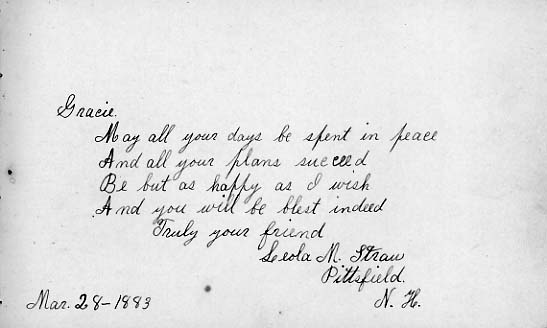 Gracie.
May all your days be spent in peace
And all your plans succeed
Be but as happy as I wish
And you will be blest indeed
Truly your friend
Leola M. Straw
Pittsfield.
N. H.
Mar. 28-1883